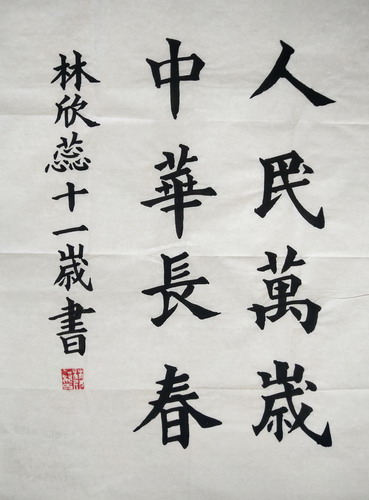 人民萬歲
中華長春
林欣蕊十一歲書